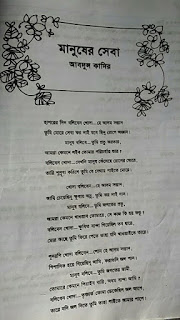 মানুষের সেবা
আবদুল কাদির
হাশরের দিন বলিবেন খোদা- হে আদম সন্তান
তুমি মোরে সেবা কর নাই যবে ছিনু রোগে অজ্ঞান।
মানুষ বলিবে - তুমি প্রভু করতার,
আমরা কেমনে লইব তোমার পরিচর্যার ভার?
বলিবেন খোদা- দেখনি মানুষ কেঁদেছে রোগের ঘোরে,
তারি শুশ্রূষা করিলে তুমি যে সেথায় পাইতে মোরে।
খোদা বলিবেন- হে আদম সন্তান,
আমি চেয়েছিনু ক্ষুধায় অন্ন, তুমি কর নাই দান।
মানুষ বলিবে- তুমি জগতের প্রভু,
আমরা কেমনে খাওয়াব তোমারে, সে কাজ কি হয় কভু?
বলিবেন খোদা- ক্ষুধিত বান্দা গিয়েছিল তব দ্বারে,
মোর কাছে তুমি ফিরে পেতে তাহা যদি খাওয়াইতে তারে।
পুনরপি খোদা বলিবেন- শোন হে আদম সন্তান,
পিপাসিত হয়ে গিয়েছিনু আমি, করাওনি জল পান।
মানুষ বলিবে- তুমি জগতের স্বামী,
তোমারে কেমনে পিয়াইব বারি, অধম বান্দা আমি?
বলিবেন খোদা- তৃষ্ণার্ত তোমা ডেকেছিল জল আশে,
তারে যদি জল দিতে তুমি তাহা পাইতে আমার পাশে।